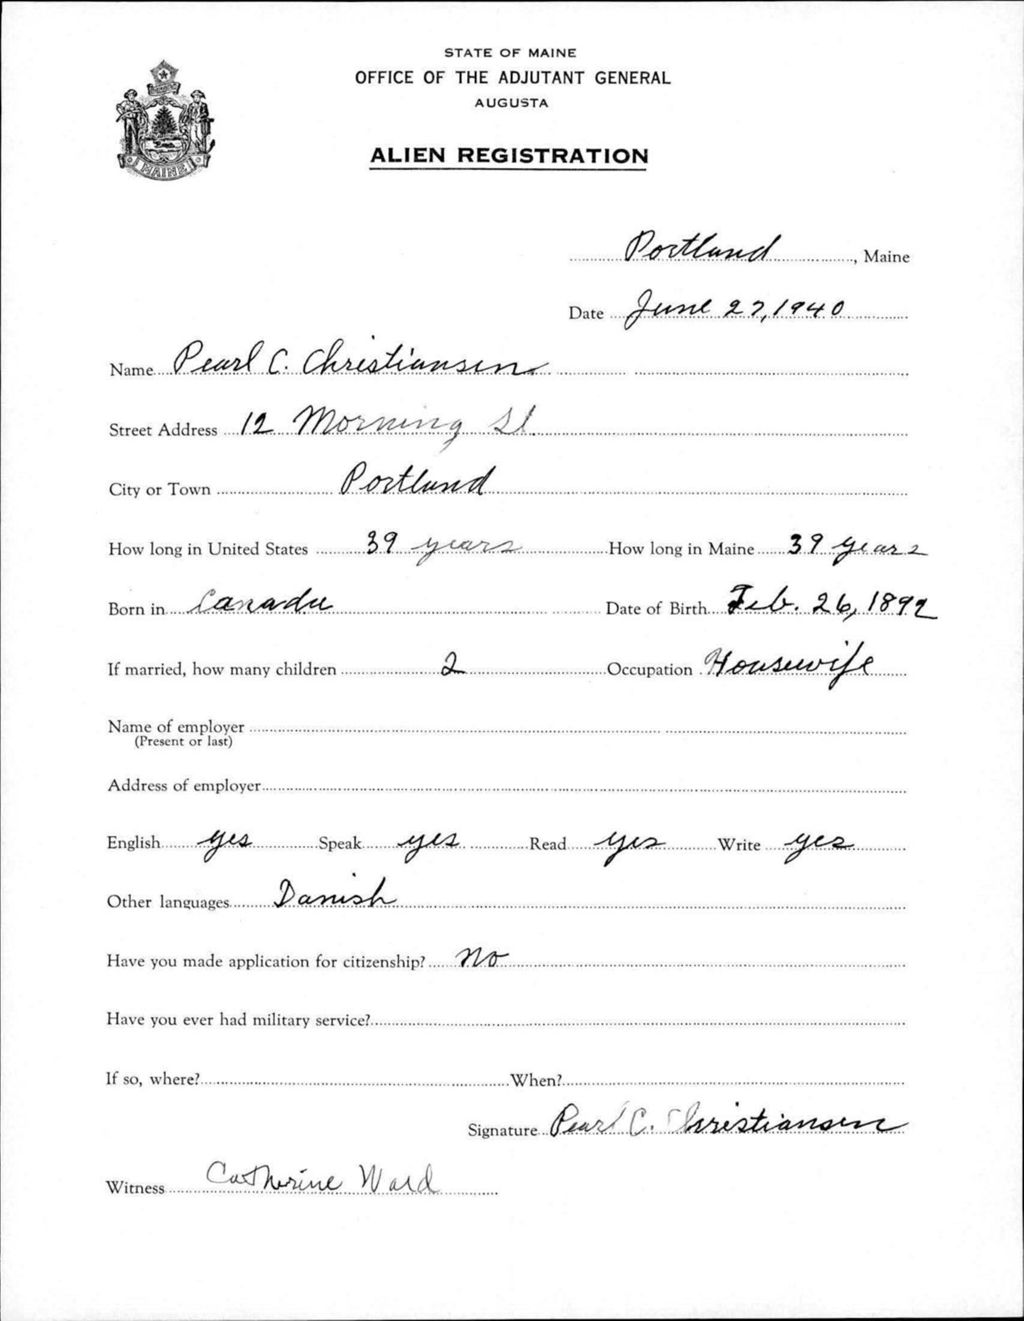 STATE OF MAINE
OFFICE OF THE ADJUTANT GENERAL
AUGUSTA
ALIEN REGISTRATION
MAINE
Portland, Maine
Date June 27, 1940
Name Pearl C. Christiansen
Street Address 12 Morning St.
City or Town Portland
How long in United States 39 years How long in Maine 39 years
Born in Canada Date of Birth Feb. 26, 1892
If married, how many children 2 Occupation Housewife
Name of employer
(Present or last)
Address of employer
English yes Speak yes Read yes Write yes
Other languages Danish
Have you made application for citizenship? No
Have you ever had military service?
If so, where? When?
Signature Pearl C. Christiansen
Witness Catherine Ward